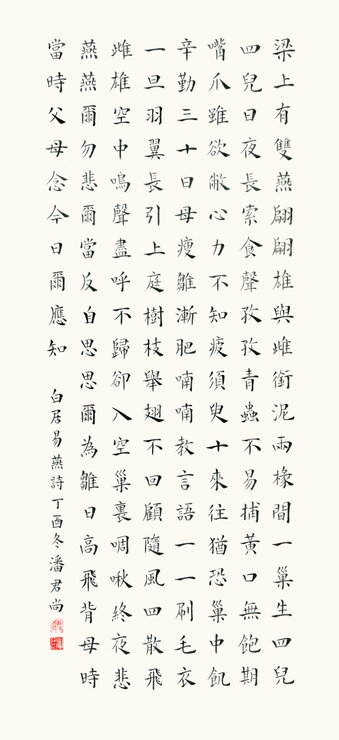 梁上有雙燕翩翩雄與雌銜泥兩椽間一巢生四兒
四兒日夜長索食聲孜孜青蟲不易捕黃口無飽期
嘴爪雖欲敝心力不知疲須臾十來往猶恐巢中飢
辛勤三十日母瘦雛漸肥喃喃教言語一一刷毛衣
一旦羽翼長引上庭樹枝舉翅不回顧隨風四散飛
雌雄空中鳴聲盡呼不歸卻入空巢裏啁啾終夜悲
燕燕爾勿悲爾當反自思思爾為雛日高飛背母時
當時父母念今日爾應知
白居易燕詩丁酉冬潘君尚